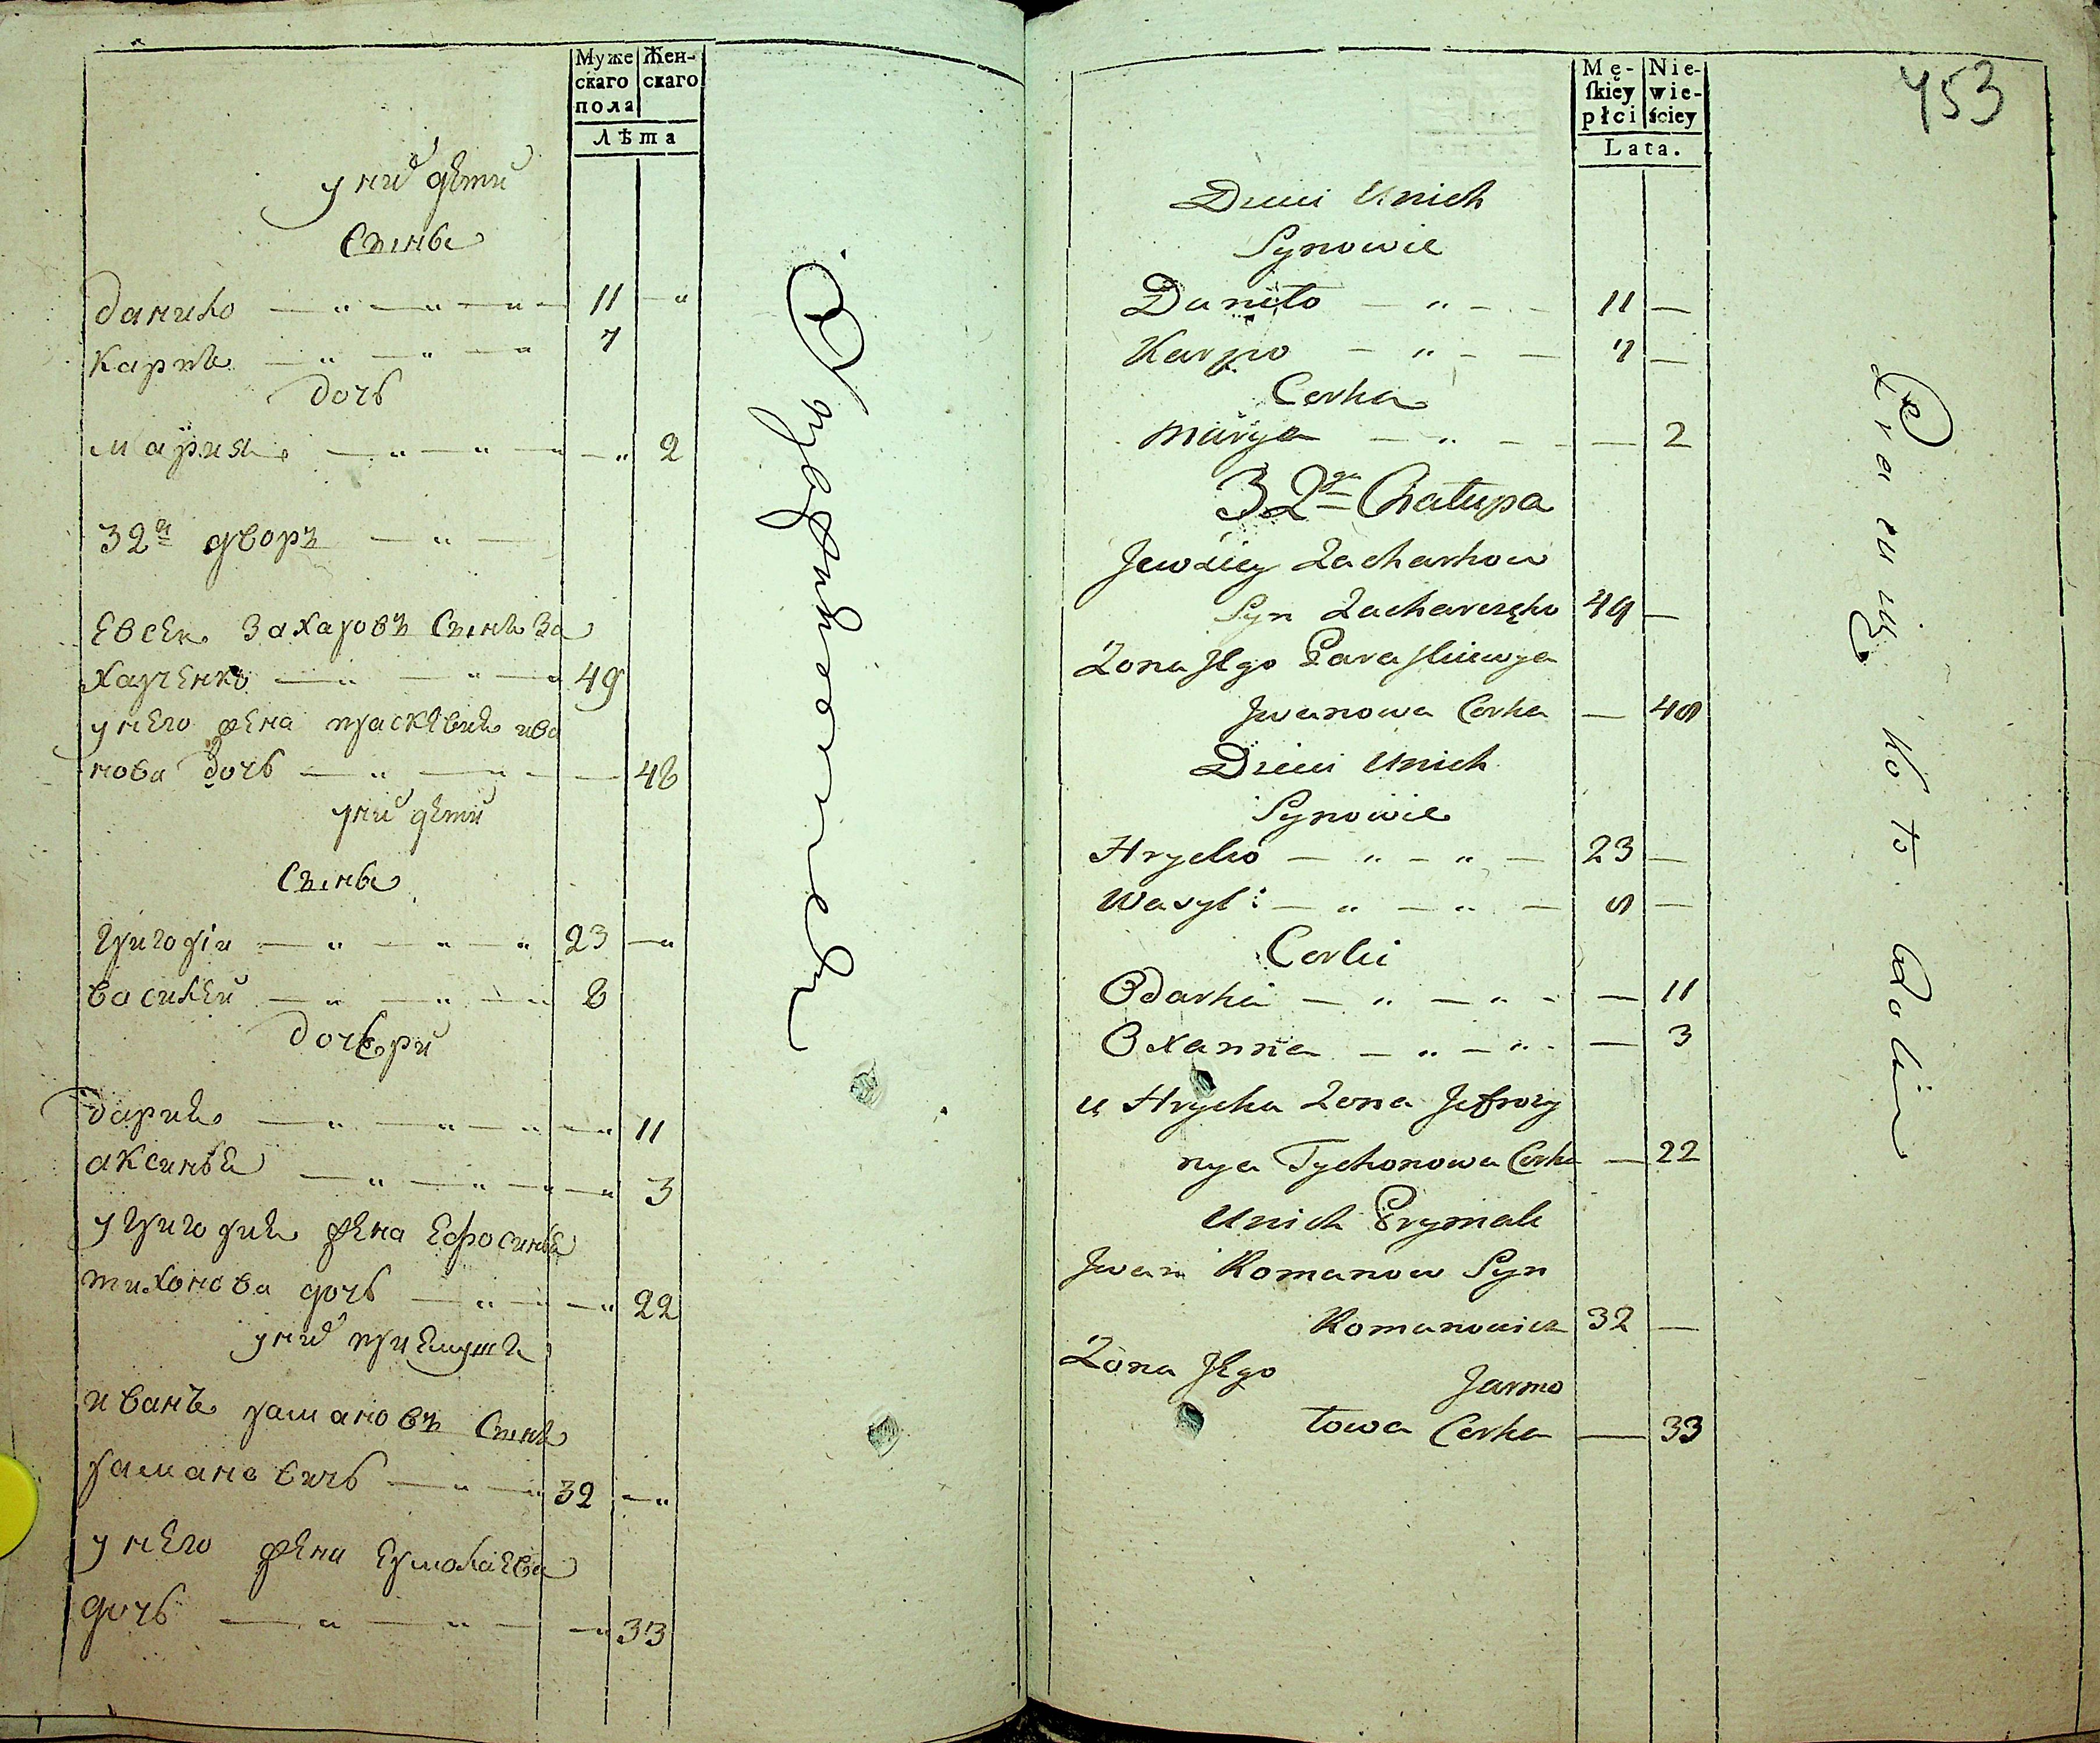 Муже
скаго
пола
Жен-
скаго
Лѣта
у них дѣти
Сынъ
данило — " — " — " — 11 — "
карпъ — " — " — " 7
дочь
Мария — " — " — " — " 2
32й дворъ — " —
Евсей Захаровъ Сынъ За
харченко — " — " — " 49
у него жена праскевия ива
нова дочь — " — " — — 48
у них дѣти
Сынъ
григорій — " — " — " 23 — "
василей — " — " — " 8
дочери
дария — " — " — " — " 11
аксинья — " — " — " — " 3
у григория жена Ефросинья
тихонова дочь — " — " — " 22
у них приемыши
иванъ рамановъ Сынъ
рамановичь — " — " 32 — "
у него жена Ермолаева
дочь — " — " — — " 33
Mę-
ſkiey
płci
Nie-
wie-
ściey
Lata.
453
Dzieci Unich
Synowie
Daniło — " — - 11 —
Karpo — " — — 7 —
Corka
Marya — " — - — 2
32ga Chałupa
Jewsiey Zacharkow
Syn Zacharczęko 49 —
Zona Jego Paraskiewya
Jwanowa Corka — 48
Dzieci Unich
Synowie
Hryćko — " — " — 23 —
Wasyl: — " — " — 8 —
Corki
Odarka — " — " - — 11
Oxanna — " — " - — 3
u Hryćka Zona Jefrozy
nya Tychonowa Corka — 22
Unich Prymak
Jwan Romanow Syn
Romanowicz 32 —
Zona Jego Jarmo
łowa Corka — 33